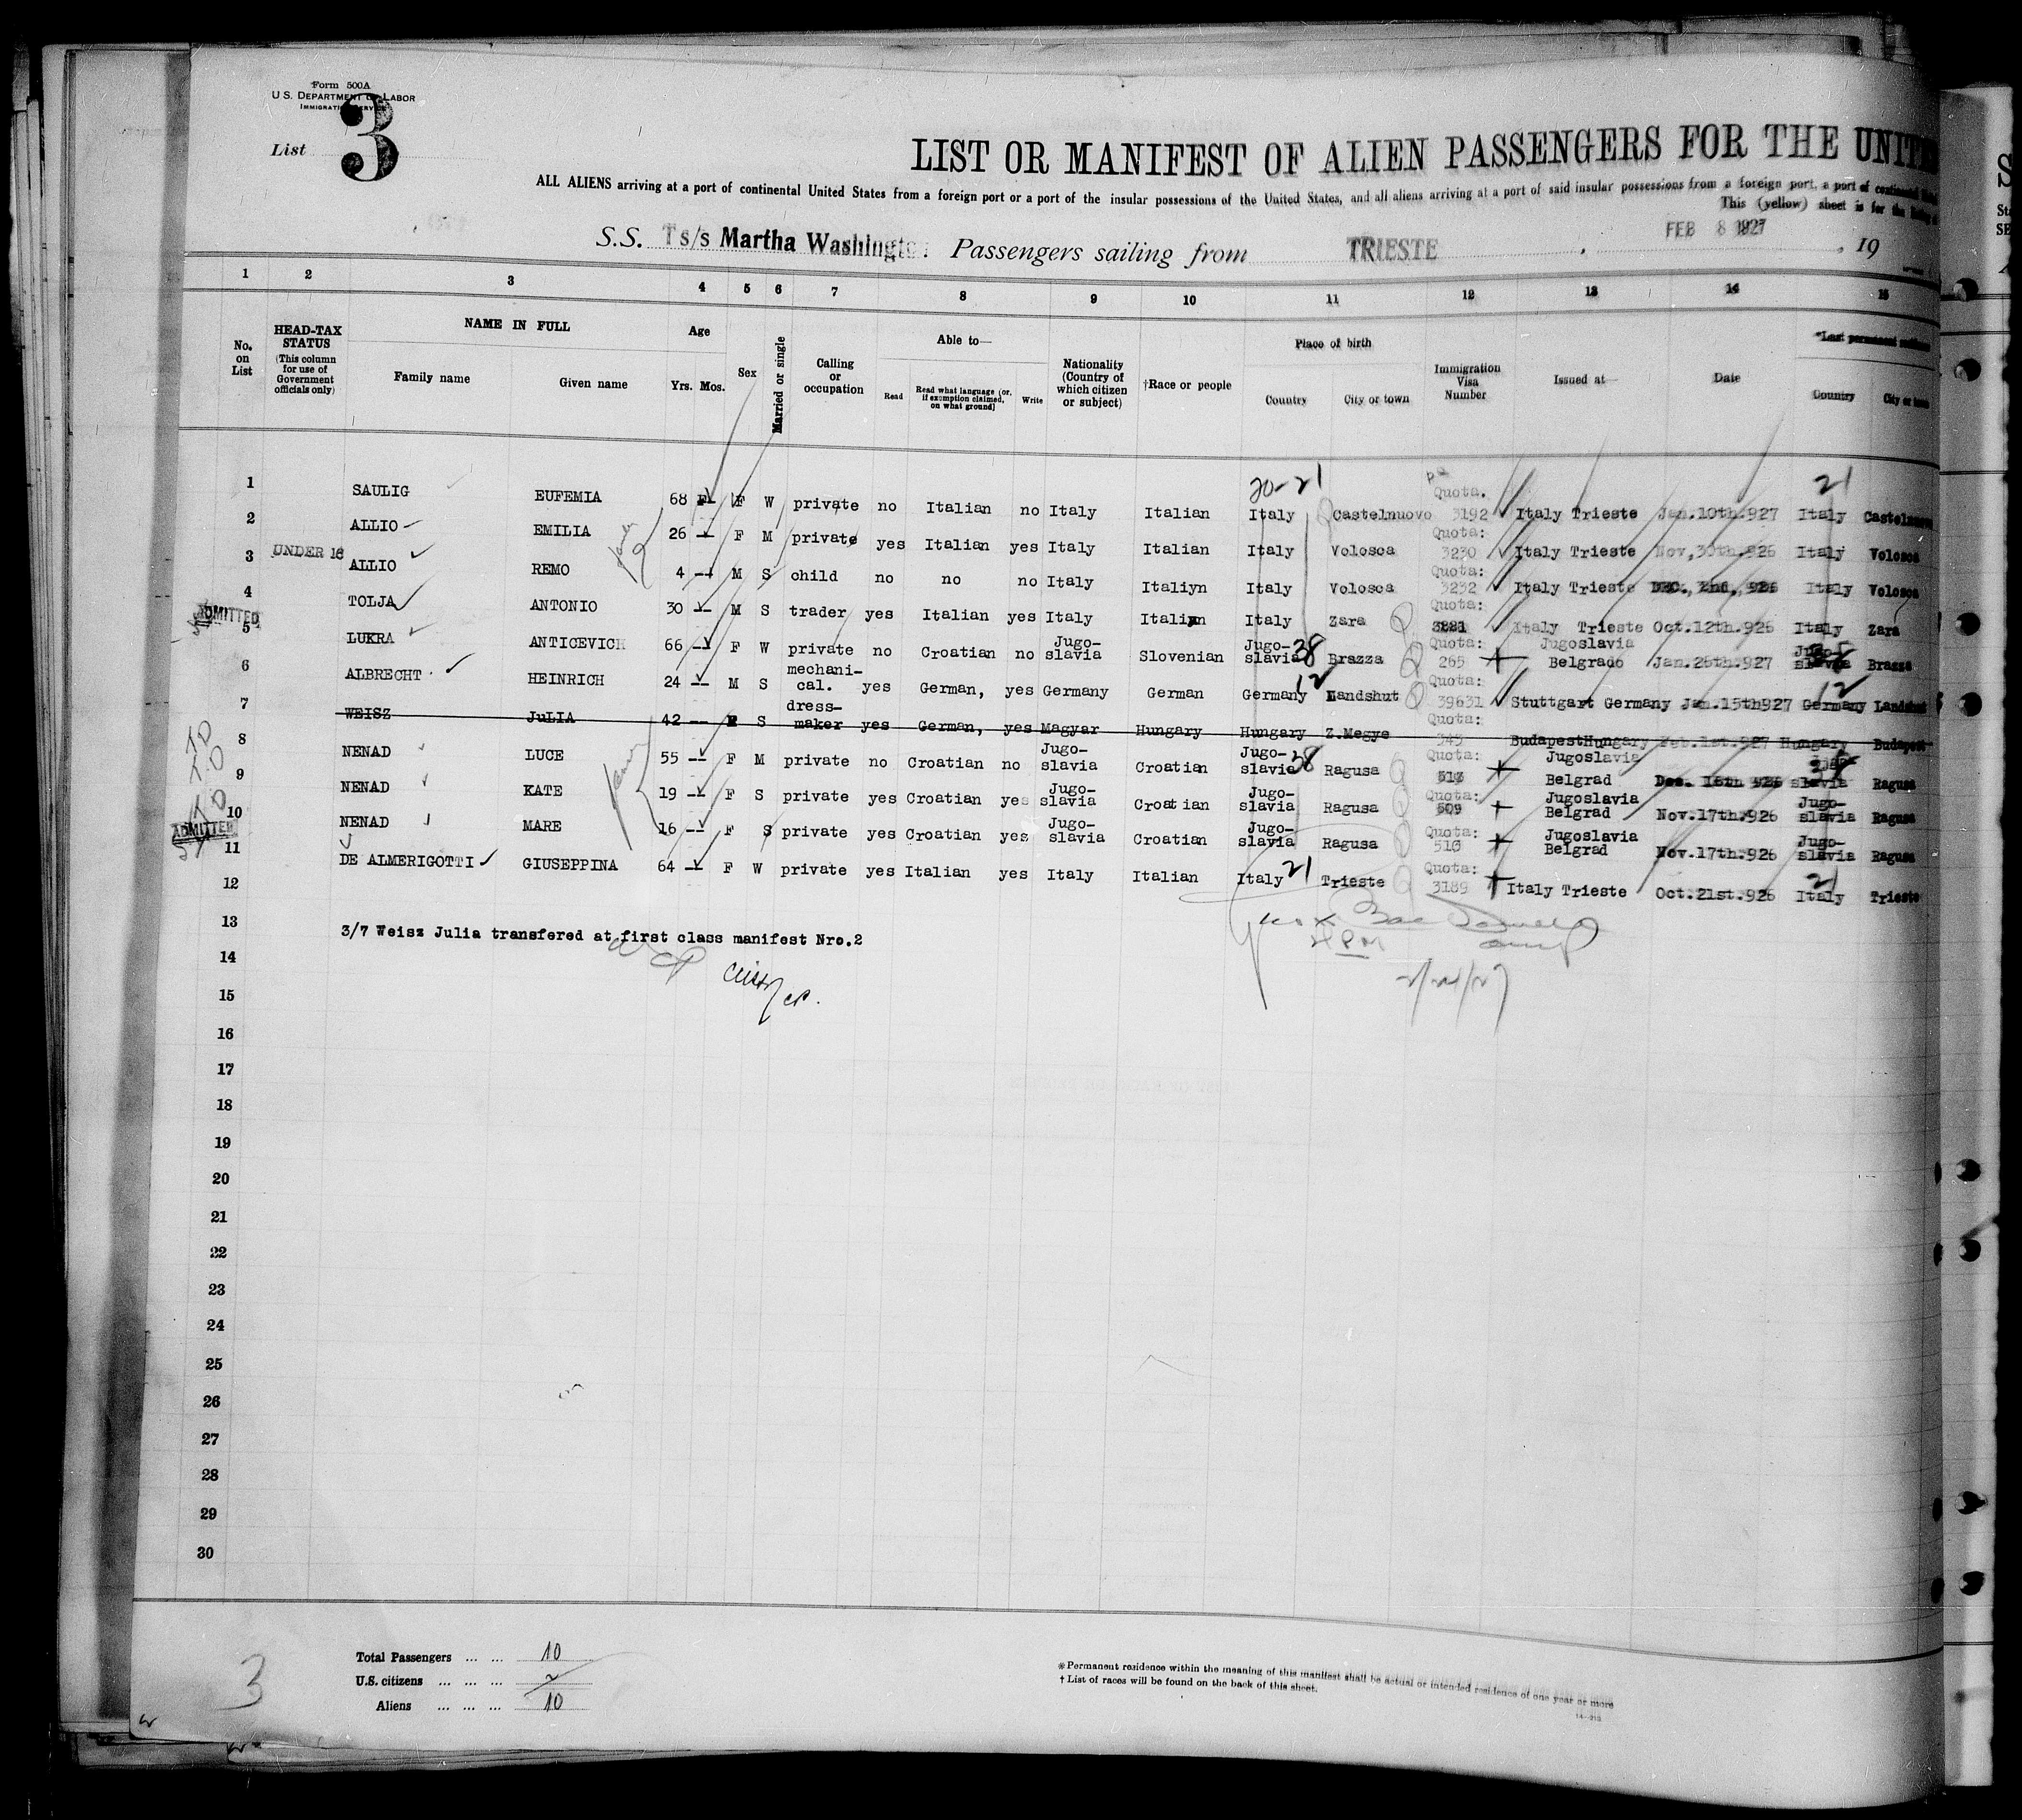 Form 500A
U.S. DEPARTMENT OF LABOR
IMMIGRATION SERVICE
List 3
LIST OR MANIFEST OF ALIEN PASSENGERS FOR THE UNITE
ALL ALIENS arriving at a port of continental United States from a foreign port or a port of the insular possessions of the United States, and all aliens arriving at a port of said insular possessions from a foreign port, a port of continental
This (yellow) sheet is for the
S.S. Ts/s Martha Washington Passengers sailing from TRIESTE, FEB 8 1927, 19
1 2 3 4 5 6 7 8 9 10 11 12 13 14 15
No. on List
HEAD-TAX STATUS (This column for use of Government officials only)
NAME IN FULL
Family name Given name
Age
Yrs. Mos.
Sex
Married or single
Calling or occupation
Able to—
Read Read what language [or, if exemption claimed, on what ground] Write
Nationality (Country of which citizen or subject)
†Race or people
Place of birth
Country City or town
Immigration Visa Number
Issued at—
Date
*Last permanent
Country City or town
20-21 21
1 SAULIG EUFEMIA 68 F W private no Italian no Italy Italian Italy Castelnuovo Quota. 3192 Italy Trieste Jan.10th.927 Italy Castelnuovo
2 ALLIO EMILIA 26 — F M private yes Italian yes Italy Italian Italy Volosca Quota: 3230 Italy Trieste Nov,30th.926 Italy Volosca
3 UNDER 16 ALLIO REMO 4 — M S child no no no Italy Italiyn Italy Volosca Quota: 3232 Italy Trieste DEC. 2nd, 926 Italy Volosca
4 TOLJA ANTONIO 30 — M S trader yes Italian yes Italy Italian Italy Zara Quota: Italy Trieste Oct.12th.926 Italy Zara
ADMITTED
5 LUKRA ANTICEVICH 66 — F W private no Croatian no Jugo-slavia Slovenian Jugo-slavia 38 Brazza Quota: 265 Jugoslavia Belgrado Jan.26th.927 Jugo-slavia Brazza
6 ALBRECHT HEINRICH 24 — M S mechani-cal. yes German, yes Germany German Germany 12 Landshut Quota: 39631 Stuttgart Germany Jan.15th927 Germany 12 Landshut
7 WEISZ JuLIA 42 — F S dress-maker yes German, yes Magyar Hungary Hungary Z.Megye Quota: 343 BudapestHungary Feb.1st.927 Hungary Budapest
8 NENAD LUCE 55 — F M private no Croatian no Jugo-slavia Croatian Jugo-slavia 38 Ragusa Quota: 513 Jugoslavia Belgrad Dec. 16th 926 slavia Ragusa
9 NENAD KATE 19 — F S private yes Croatian yes Jugo-slavia Croatian Jugo-slavia Ragusa Quota: 509 Jugoslavia Belgrad Nov.17th.926 Jugo-slavia Ragusa
10 NENAD MARE 16 — F S private yes Croatian yes Jugo-slavia Croatian Jugo-slavia Ragusa Quota: 510 Jugoslavia Belgrad Nov.17th.926 Jugo-slavia Ragusa
ADMITTED
11 DE ALMERIGOTTI GIUSEPPINA 64 — F W private yes Italian yes Italy Italian Italy 21 Trieste Quota: 3189 Italy Trieste Oct.21st.926 Italy 21 Trieste
12
13 3/7 Weisz Julia transfered at first class manifest Nro.2
14
2/21/27
15
16
17
18
19
20
21
22
23
24
25
26
27
28
29
30
Total Passengers ... ... 10
U.S. citizens ... ... ...
Aliens ... ... ... 10
3
*Permanent residence within the meaning of this manifest shall be actual or intended residence of one year or more
† List of races will be found on the back of this sheet.